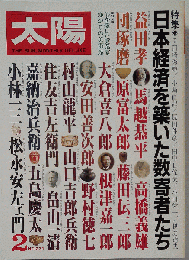 太陽
特集●
日本経済を築いた数寄者たち
益田孝 馬越恭平 高橋義雄
団琢磨 原富太郎 藤田伝三郎
大倉喜八郎 根津嘉一郎
安田善次郎 野村徳七
村山龍平 山口吉郎兵衛
住友吉左衛門 畠山一清
嘉納治兵衛 五島慶太
小林一三 松永安左ヱ門
2